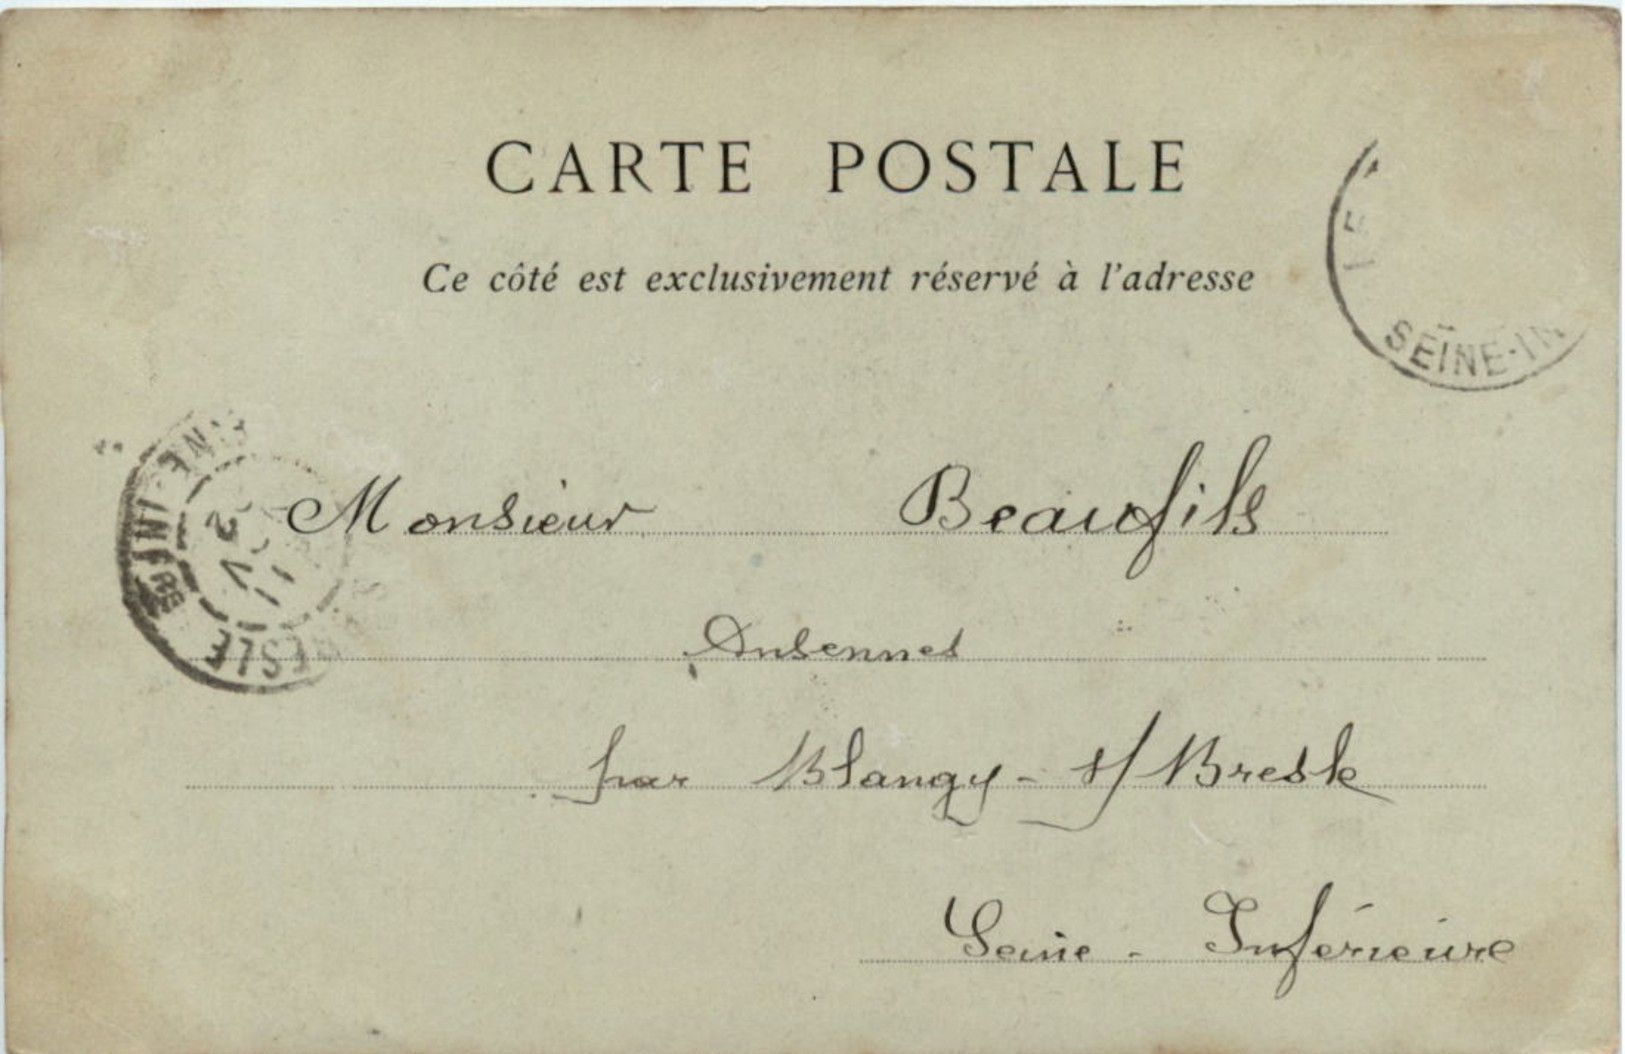 CARTE POSTALE
Ce côté est exclusivement réservé à l'adresse
SEINE-IN
Monsieur Beaufils
Ansennes
par Blangy - s/ Bresle
Seine - Inférieure